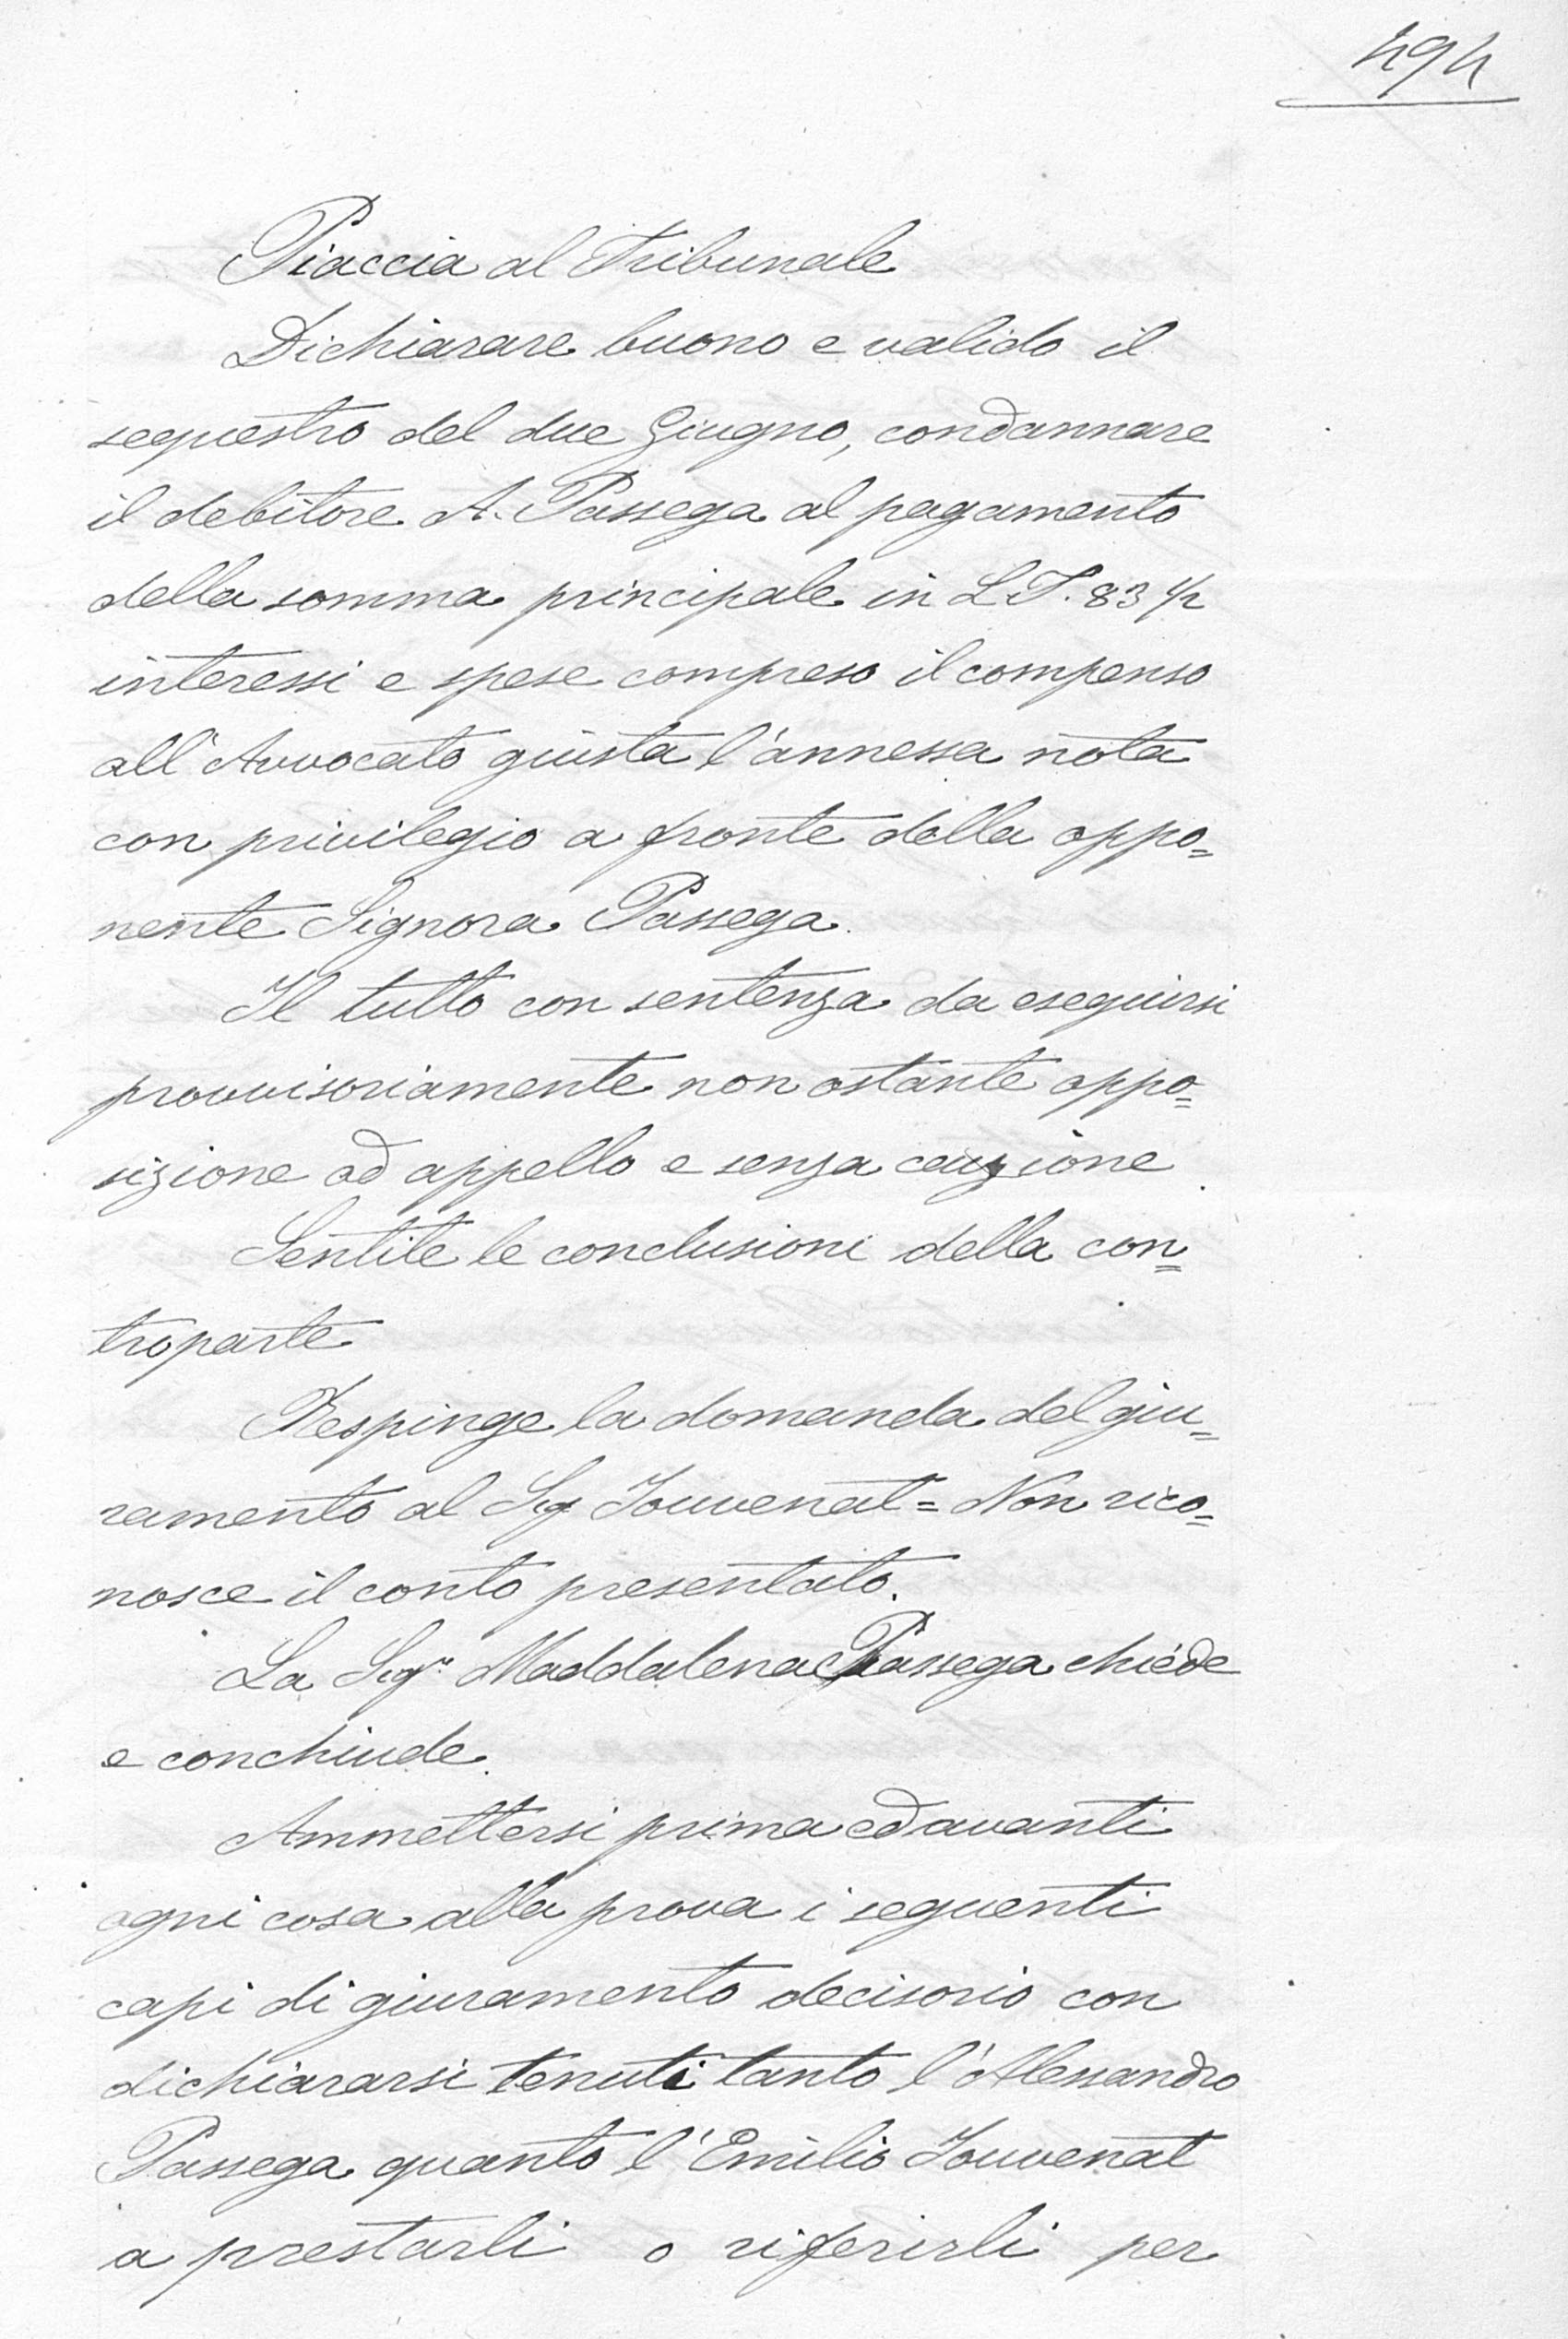 494
Piaccia al Tribunale
Dichiarare buono e valido il
sequestro del due Giugno, condannare
il debitore A. Passega al pagamento
della somma principale in L T. 83 1/2
interessi e spese compreso il compenso
all'Avvocato giusta l'annessa nota
con privilegio a fronte della oppo=
nente Signora Passega.
Il tutto con sentenza da eseguirsi
provvisoriamente non ostante oppo=
sizione od appello e senza cauzione.
Sentite le conclusioni della con=
troparte
Respinge la domanda del giu=
ramento al Sig Jouvenat = Non rico=
nosce il conto presentato.
La Sigra Maddalena Passega chiede
e conchiude.
Ammettersi prima ed avanti
ogni cosa alla prova i seguenti
capi di giuramento decisorio con
dichiararsi tenuti tanto l'Alessandro
Passega quanto l'Emilio Jouvenat
a prestarli o riferirli per